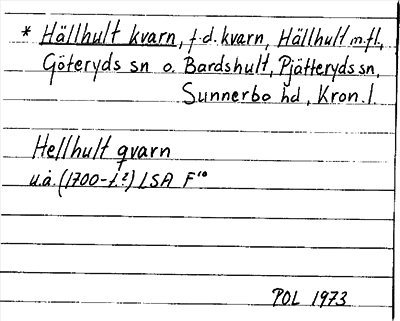 * Hällhult kvarn, f.d. kvarn, Hällhult m.fl.,
Göteryds sn o. Bardshult, Pjätteryds sn,
Sunnerbo hd, Kron. l.
Hellhult qvarn
u.å. (1700-t.?) LSA F¹⁰
POL 1973